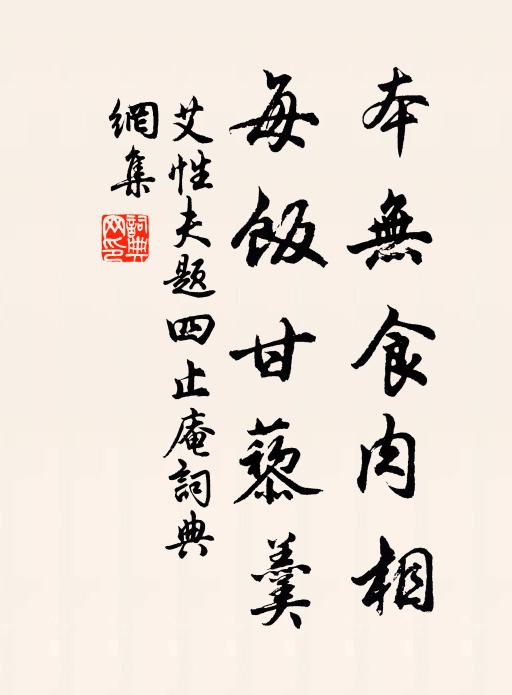 本無食肉相
每飯甘藜羹
艾性夫題四止庵詞典
網集
詞典
网印